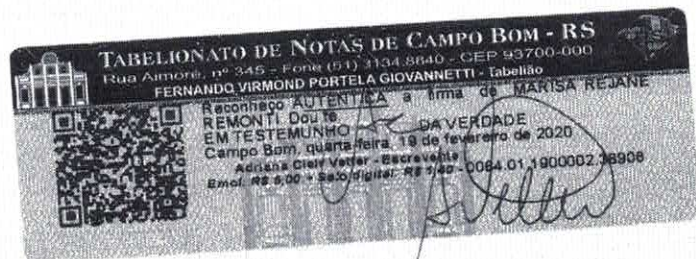 TABELIONATO DE NOTAS DE CAMPO BOM - RS
Rua Aimoré, nº 345 - Fone (51) 3134.8640 - CEP 93700-000
FERNANDO VIRMOND PORTELA GIOVANNETTI - Tabelião
Reconheço AUTENTICA a firma de MARISA REJANE
REMONTI. Dou fé.
EM TESTEMUNHO DA VERDADE
Campo Bom, quarta-feira, 19 de fevereiro de 2020
Adriana Cleir Vetter - Escrevente
Emol. R$ 5,00 + Selo digital: R$ 1,40 - 0084.01.1900002.38908